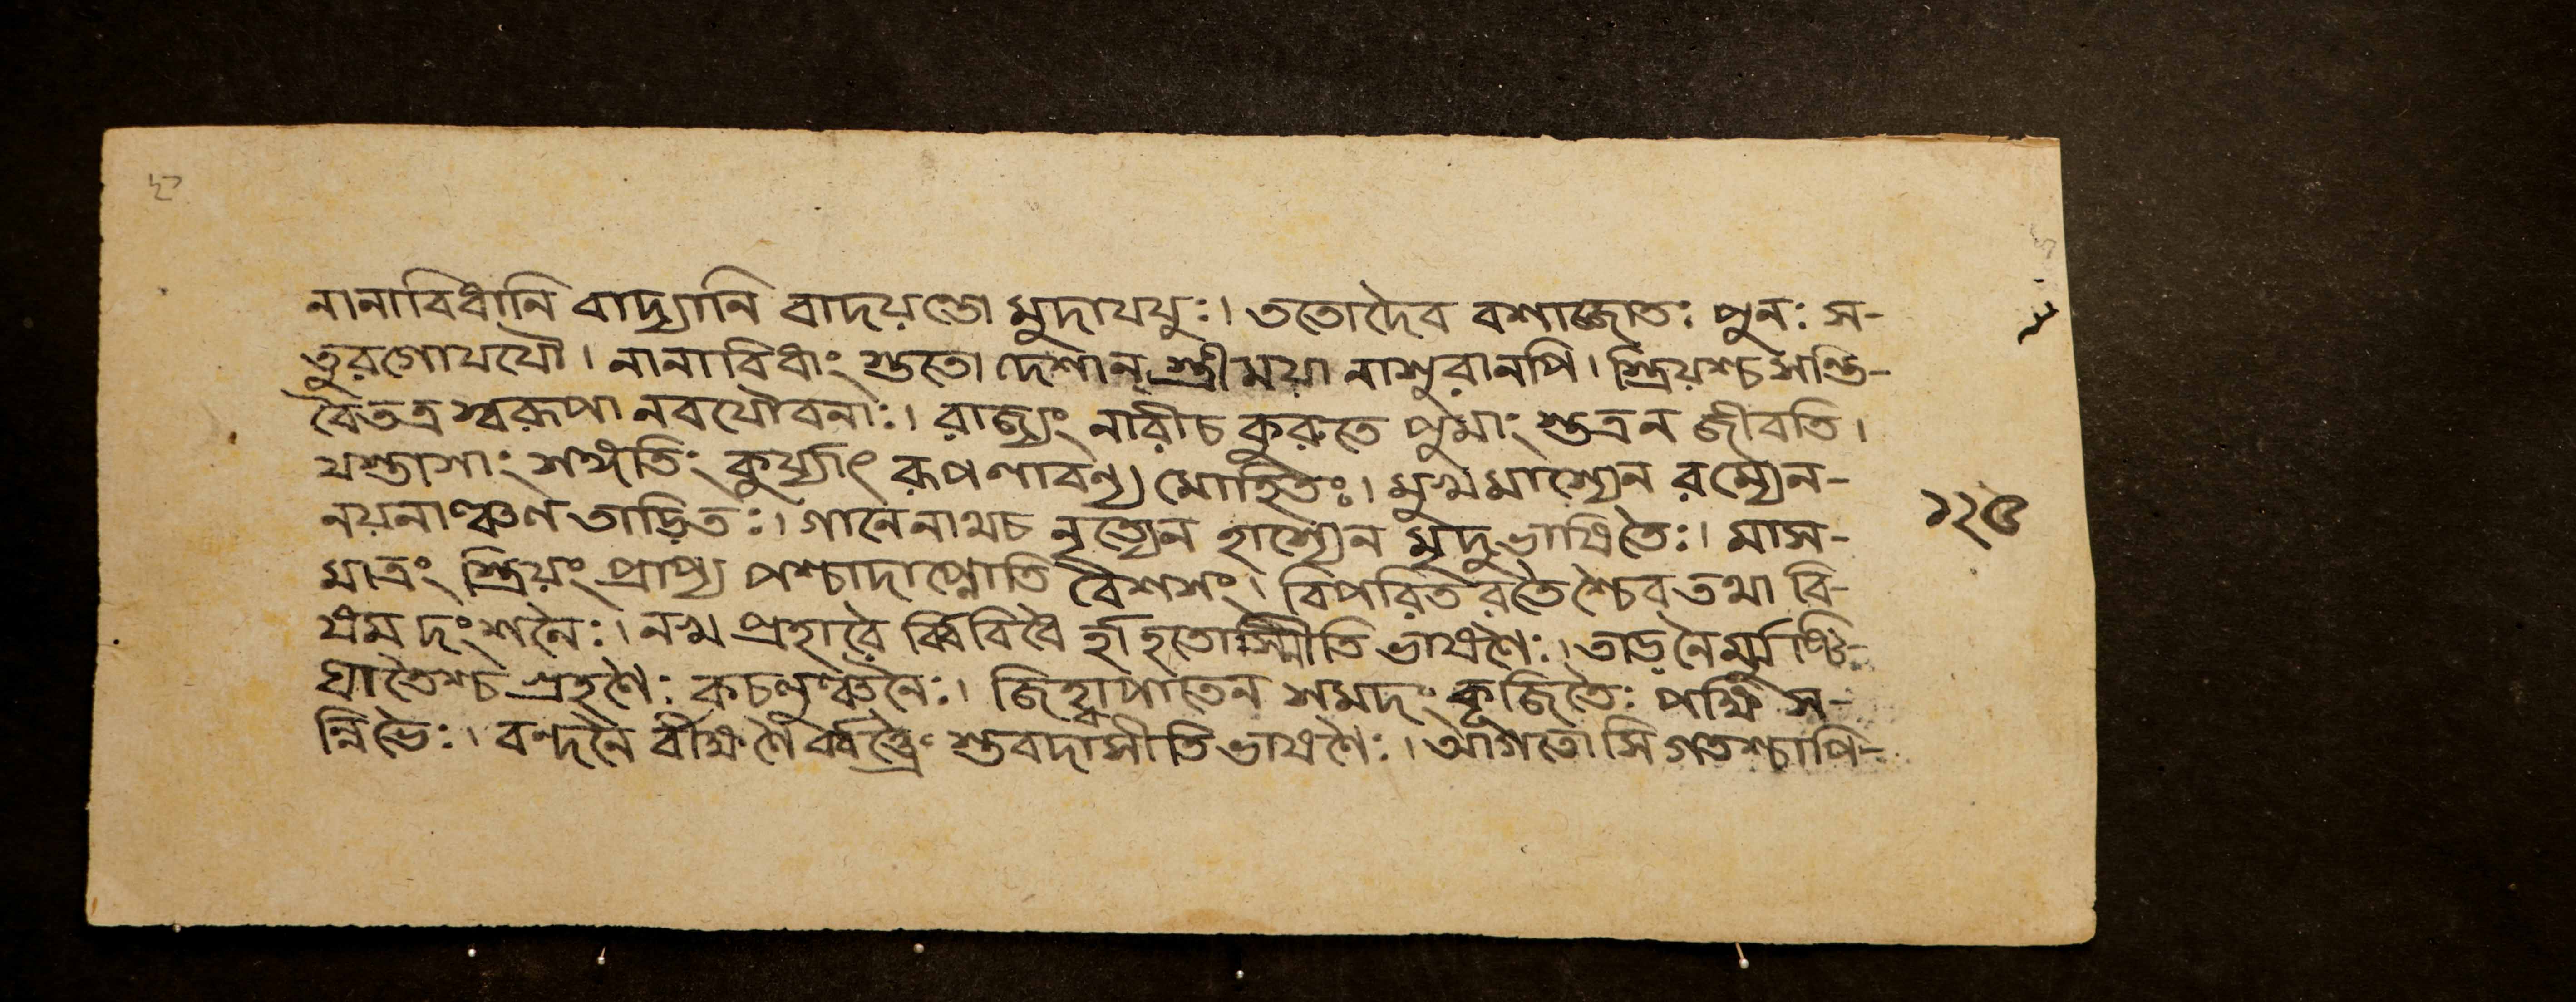 নানাবিধানি বাদ্যানি বাদয়ন্তো মুদাযযুঃ। ততোদৈব বশাজ্জাতঃ পুনঃ স-
তুরগোযযৌ। নানাবিধাং শুতো দেশান্ স্ত্রীময়া নাসুরানপি। স্ত্রিয়শ্চ সন্তি-
বৈতত্র স্বরূপা নবযৌবনাঃ। রাজ্যং নারীচ কুরুতে পুমাং স্তত্রন জীবতি।
যস্তাসাং সঙ্গতিং কুর্য্যাৎ রূপলাবন্য মোহিতঃ। মুখমাস্যেন রম্যেন-
নয়নাঞ্চণ তাড়িতঃ। গানেনাথচ নৃত্যেন হাস্যেন মৃদুভাষিতৈঃ। মাস-
মাত্রং স্ত্রিয়ং প্রাপ্য পশ্চাদাপ্নোতি বৈশসং। বিপরিত রতৈশ্চৈব তথা বি-
ষম দংশনৈঃ। নখ প্রহারৈ র্ব্বিবিধৈ র্হাহতোস্মীতি ভাষণৈঃ। তাড়নৈর্ম্মুষ্টি-
ঘাতৈশ্চ গ্রহণৈঃ কচলুঞ্চনৈঃ। জিহ্বাপাতেন সমদং কূজিতৈঃ পক্ষি স-
ন্নিভৈঃ। বন্দনৈ র্বীক্ষণৈ স্তবদাসীতি ভাষণৈঃ। আগতোসি গতশ্চাপি-
১২৫